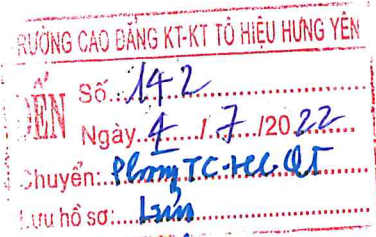 RƯỜNG CAO ĐẲNG KT-KT TÔ HIỆU HƯNG YÊN
ĐẾN
Số: 142
Ngày 4/7/2022
Chuyển: Phòng TC-HC-QT
Lưu hồ sơ: